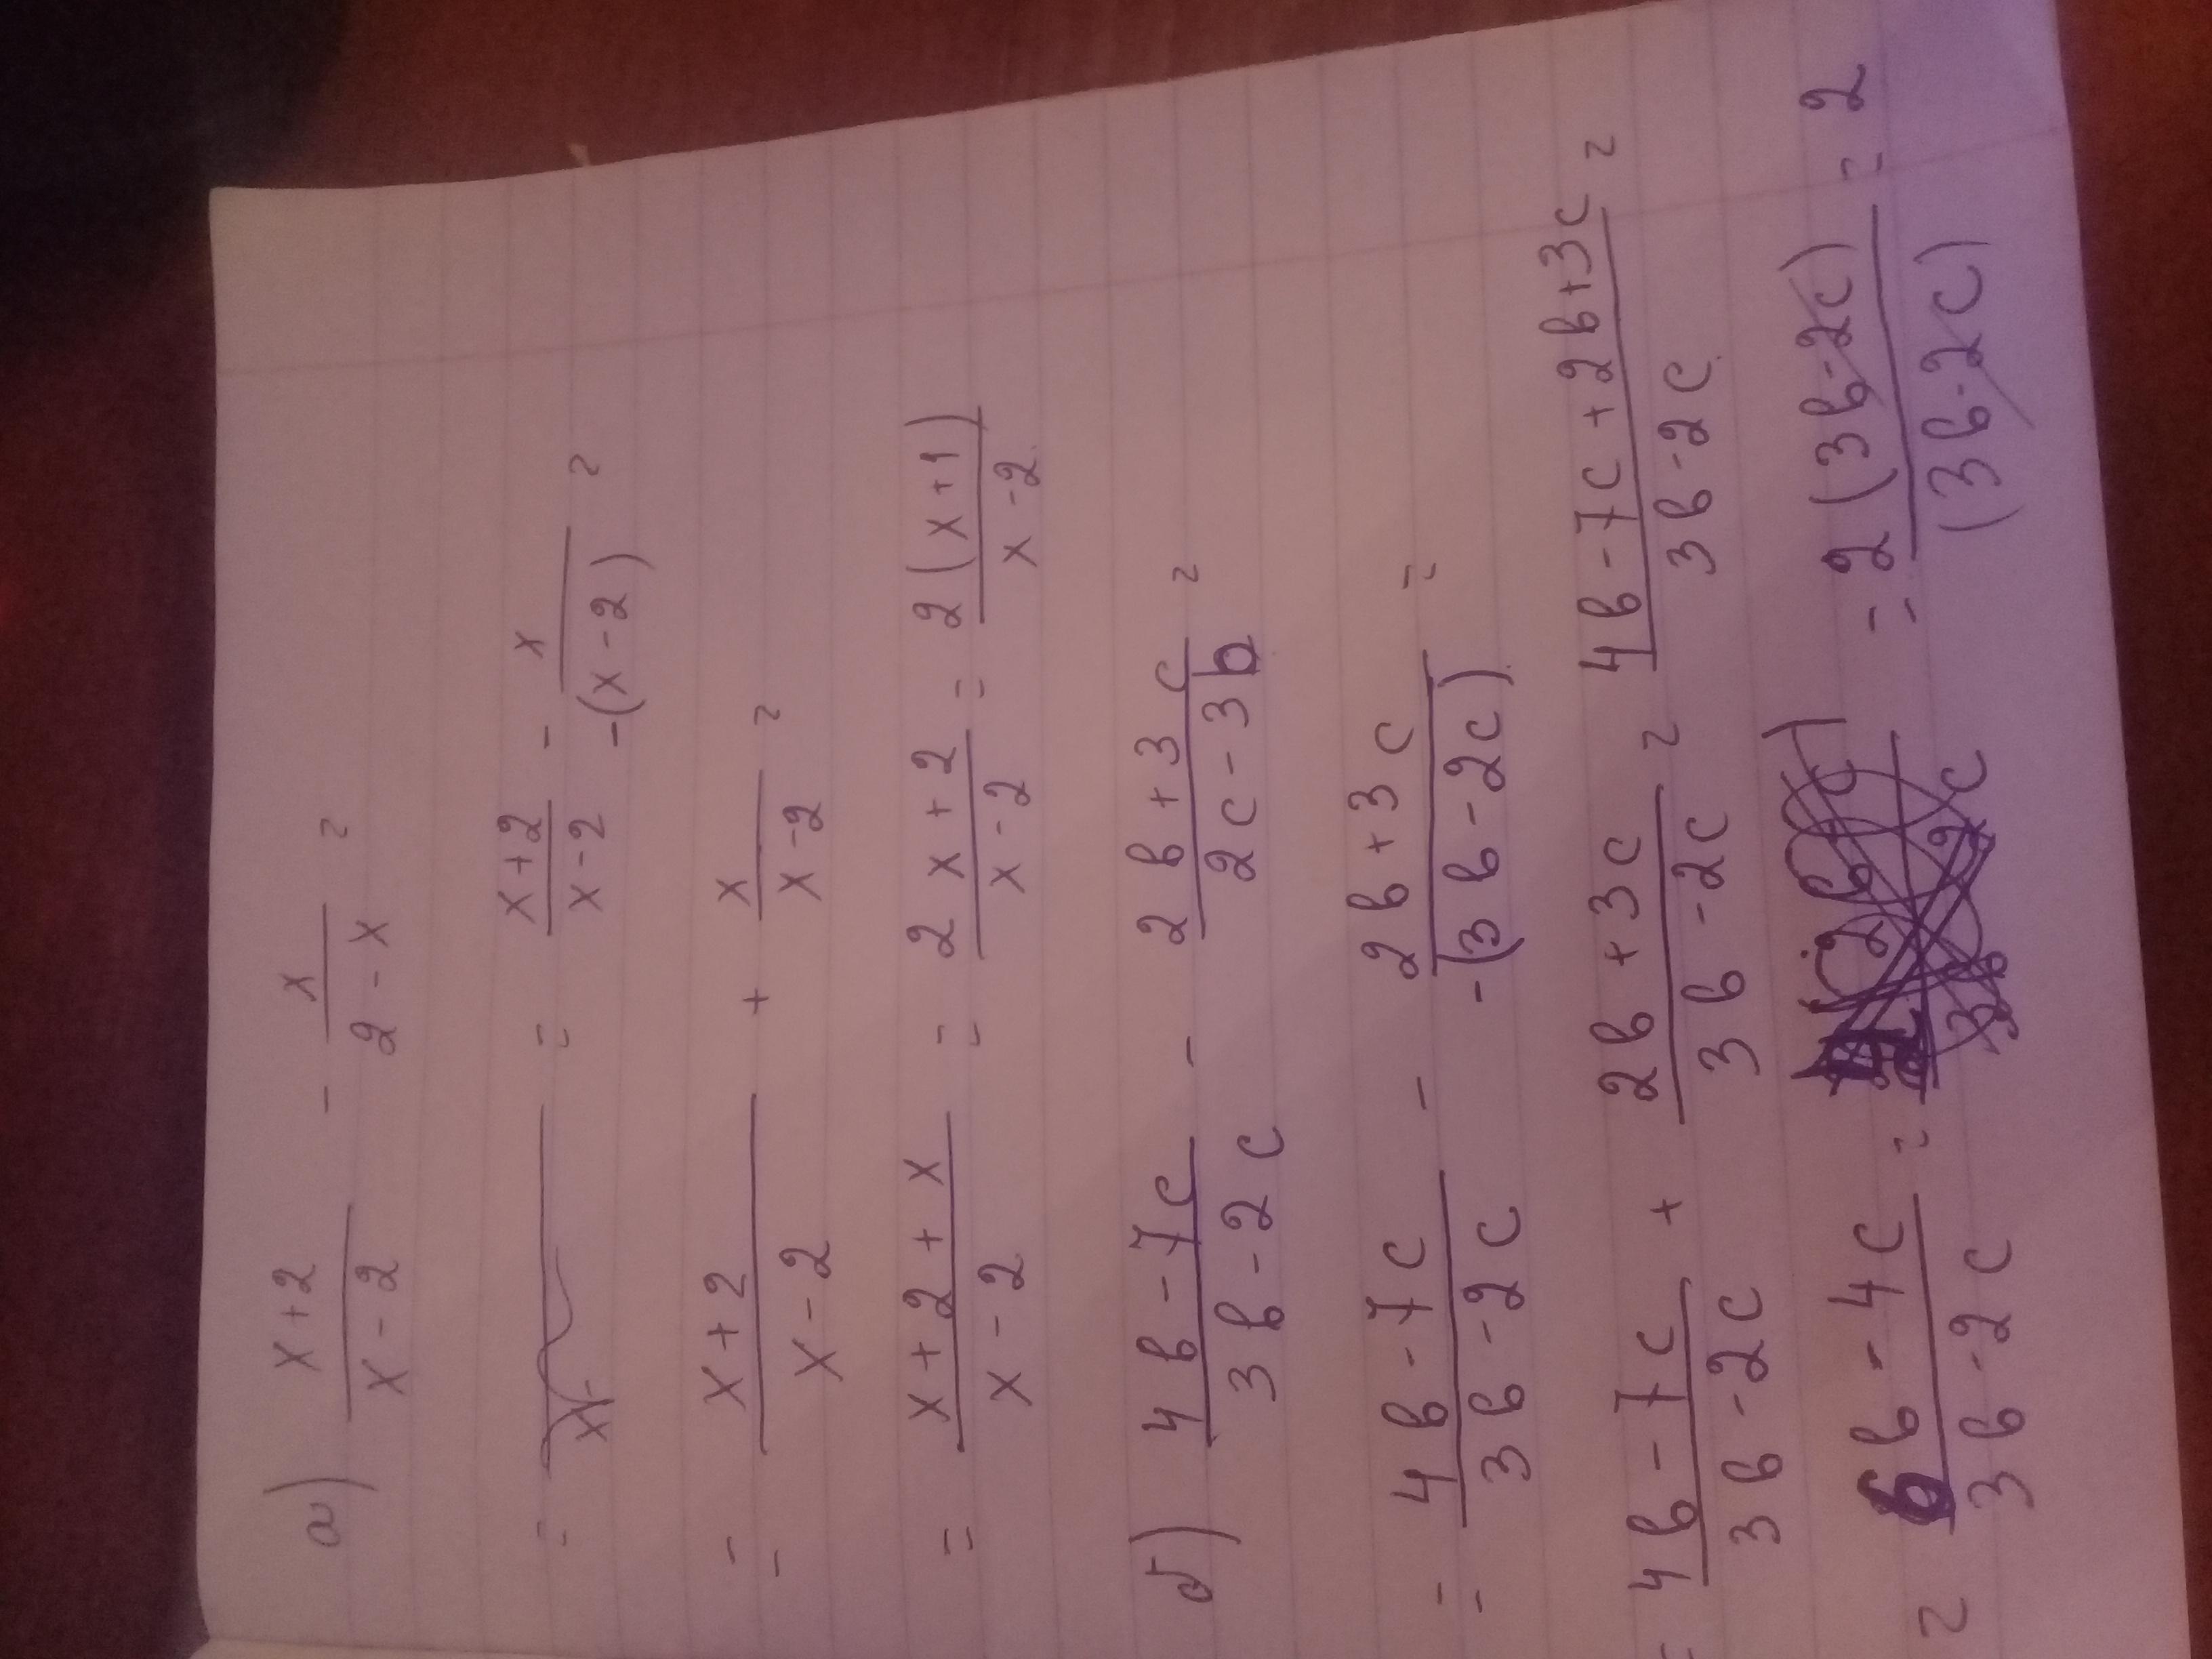 а) (x+2)/(x-2) - x/(2-x) =
= (x+2)/(x-2) - x/(-(x-2)) =
= (x+2)/(x-2) + x/(x-2) =
= (x+2+x)/(x-2) = (2x+2)/(x-2) = 2(x+1)/(x-2)
б) (4b-7c)/(3b-2c) - (2b+3c)/(2c-3b) =
= (4b-7c)/(3b-2c) - (2b+3c)/(-(3b-2c)) =
= (4b-7c)/(3b-2c) + (2b+3c)/(3b-2c) = (4b-7c+2b+3c)/(3b-2c) =
= (6b-4c)/(3b-2c) = = 2(3b-2c)/(3b-2c) = 2